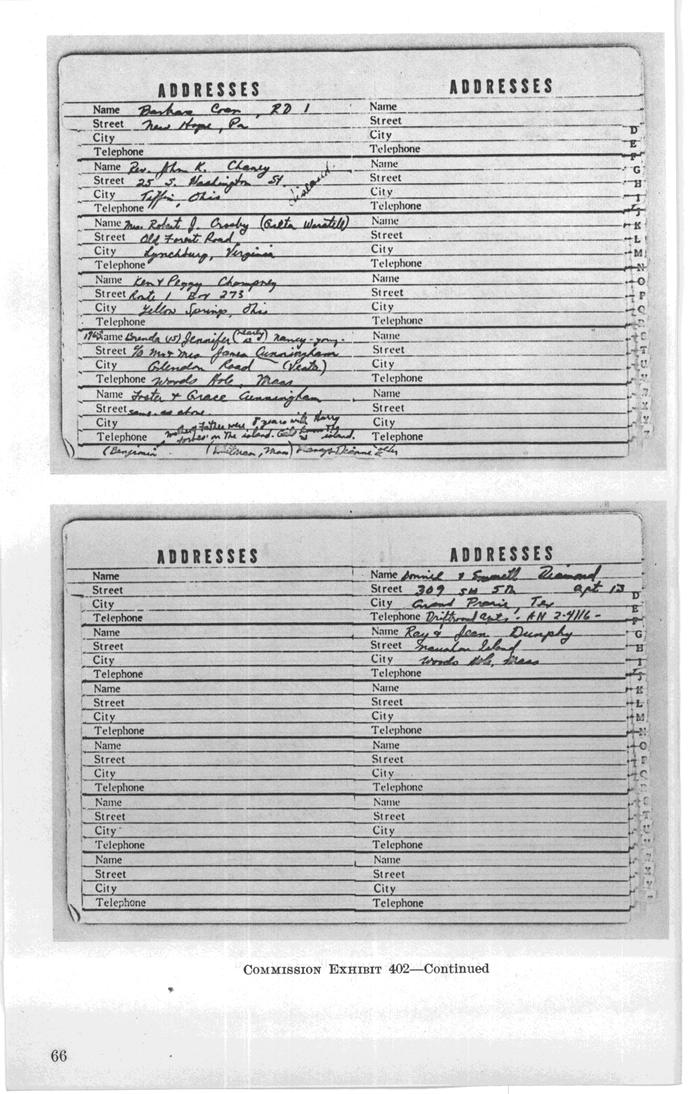 ADDRESSES
Name Barbara Coan, RD 1
Street New Hope, Pa
City
Telephone
Name Rev. John K. Chaney
Street 25 S. Washington St.
City Tiffin, Ohio
Telephone
Name Mrs Robert J. Crosby (Greta Worstell)
Street Old Forest Road
City Lynchburg, Virginia
Telephone
Name Ken & Peggy Champney
Street Route 1 Box 273
City Yellow Springs, Ohio
Telephone
Name Brenda (5) Jennifer Nancy - young.
Street c/o Mr & Mrs James Cunningham
City Glendon Road (Vesta)
Telephone Woods Hole, Mass
Name Foster & Grace Cunningham
Street same as above.
City father were 8 years with Harry
Telephone Forbes on the island. island.
(Benjamin
ADDRESSES
Name
Street
City
Telephone
Name
Street
City
Telephone
Name
Street
City
Telephone
Name
Street
City
Telephone
Name
Street
City
Telephone
Name
Street
City
Telephone
D
E
F
G
H
I
J
K
L
M
N
O
P
ADDRESSES
Name
Street
City
Telephone
Name
Street
City
Telephone
Name
Street
City
Telephone
Name
Street
City
Telephone
Name
Street
City
Telephone
Name
Street
City
Telephone
ADDRESSES
Name & Emmett Diamond
Street 309 SW 5th apt 13
City Grand Prairie, Tex
Telephone Driftwood apts. - AN 2-4116 -
Name Ray & Jean Dunphy
Street Naushon Island
City Woods Hole, Mass
Telephone
Name
Street
City
Telephone
Name
Street
City
Telephone
Name
Street
City
Telephone
Name
Street
City
Telephone
D
E
F
G
H
I
J
K
L
M
N
O
P
COMMISSION EXHIBIT 402—Continued
66